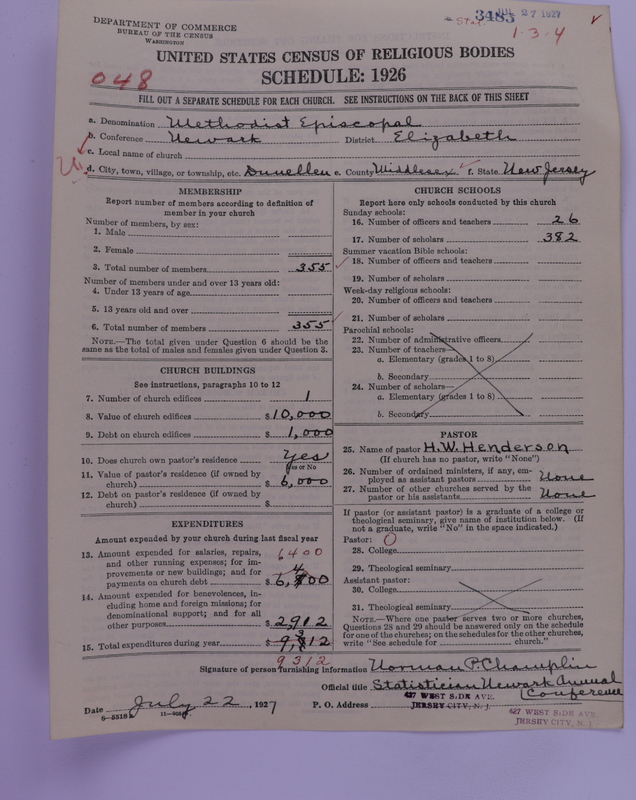 DEPARTMENT OF COMMERCE
BUREAU OF THE CENSUS
WASHINGTON
3485 JUL 27 1927
Stat.
1-3-4
UNITED STATES CENSUS OF RELIGIOUS BODIES
048
SCHEDULE: 1926
FILL OUT A SEPARATE SCHEDULE FOR EACH CHURCH. SEE INSTRUCTIONS ON THE BACK OF THIS SHEET
a. Denomination Methodist Episcopal
b. Conference Newark District Elizabeth
c. Local name of church
d. City, town, village, or township, etc. Dunellen e. County Middlesex f. State New Jersey
MEMBERSHIP
Report number of members according to definition of
member in your church
Number of members, by sex:
1. Male
2. Female
3. Total number of members 355
Number of members under and over 13 years old:
4. Under 13 years of age
5. 13 years old and over
6. Total number of members 355
NOTE.—The total given under Question 6 should be the
same as the total of males and females given under Question 3.
CHURCH BUILDINGS
See instructions, paragraphs 10 to 12
7. Number of church edifices 1
8. Value of church edifices $10,000
9. Debt on church edifices $1,000
10. Does church own pastor's residence Yes
Yes or No
11. Value of pastor's residence (if owned by
church) $6,000
12. Debt on pastor's residence (if owned by
church) $
EXPENDITURES
Amount expended by your church during last fiscal year
13. Amount expended for salaries, repairs, 6400
and other running expenses; for im-
provements or new buildings; and for
payments on church debt $6,400
14. Amount expended for benevolences, in-
cluding home and foreign missions; for
denominational support; and for all
other purposes $2,912
15. Total expenditures during year $9,312
9312
CHURCH SCHOOLS
Report here only schools conducted by this church
Sunday schools:
16. Number of officers and teachers 26
17. Number of scholars 382
Summer vacation Bible schools:
18. Number of officers and teachers
19. Number of scholars
Week-day religious schools:
20. Number of officers and teachers
21. Number of scholars
Parochial schools:
22. Number of administrative officers
23. Number of teachers—
a. Elementary (grades 1 to 8)
b. Secondary
24. Number of scholars—
a. Elementary (grades 1 to 8)
b. Secondary
PASTOR
25. Name of pastor H.W. Henderson
(If church has no pastor, write "None")
26. Number of ordained ministers, if any, em-
ployed as assistant pastors None
27. Number of other churches served by the
pastor or his assistants None
If pastor (or assistant pastor) is a graduate of a college or
theological seminary, give name of institution below. (If
not a graduate, write "No" in the space indicated.)
Pastor: 0
28. College
29. Theological seminary
Assistant pastor:
30. College
31. Theological seminary
NOTE.—Where one pastor serves two or more churches,
Questions 28 and 29 should be answered only on the schedule
for one of the churches; on the schedules for the other churches,
write "See schedule for church."
Signature of person furnishing information Norman P. Champlin
Official title Statistician Newark Annual
Conference
Date July 22, 1927 P. O. Address 427 WEST SIDE AVE.
JERSEY CITY, N. J.
427 WEST SIDE AVE.
JERSEY CITY, N. J.